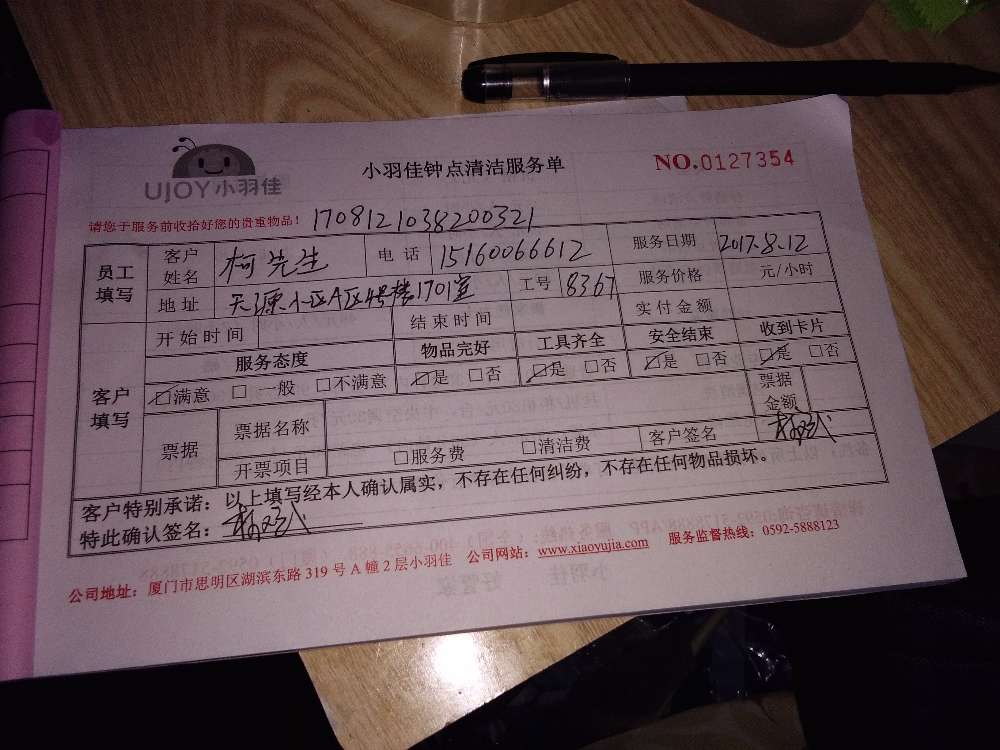 UJOY小羽佳
小羽佳钟点清洁服务单
NO.0127354
请您于服务前收拾好您的贵重物品！ 1708121038200321
员工填写 客户姓名 柯先生 电话 15160066612 服务日期 2017.8.12
地址 天源小区A区4号楼1701室 工号 8367 服务价格 元/小时
客户填写 开始时间 结束时间 实付金额
服务态度 物品完好 工具齐全 安全结束 收到卡片
☑满意 □一般 □不满意 ☑是 □否 ☑是 □否 ☑是 □否 ☑是 □否
票据 票据名称 票据金额
开票项目 □服务费 □清洁费 客户签名
客户特别承诺：以上填写经本人确认属实，不存在任何纠纷，不存在任何物品损坏。
特此确认签名：
公司地址：厦门市思明区湖滨东路319号A幢2层小羽佳 公司网站：www.xiaoyujia.com 服务监督热线：0592-5888123